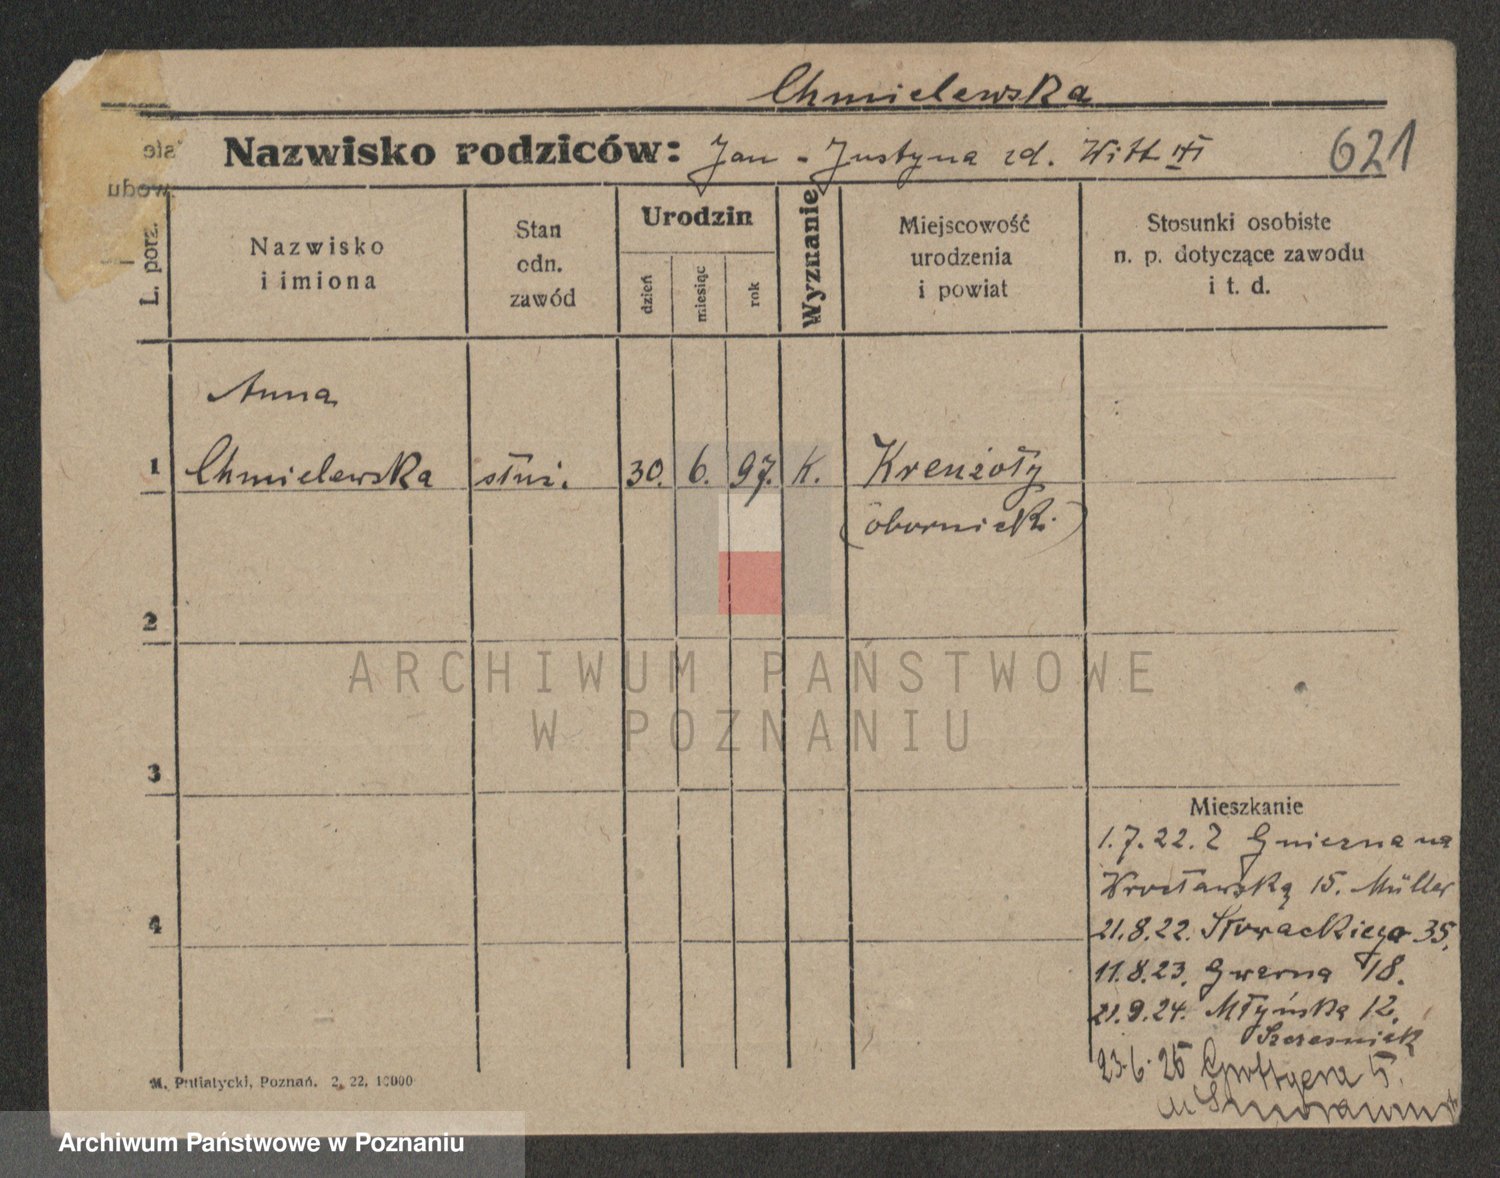 Chmielewska
Nazwisko rodziców: Jan - Justyna zd. Witt VI
621
L. porz.
Nazwisko
i imiona
Stan
odn.
zawód
Urodzin
dzień
miesiąc
rok
Wyznanie
Miejscowość
urodzenia
i powiat
Stosunki osobiste
n. p. dotyczące zawodu
i t. d.
Anna
1 Chmielewska służ. 30. 6. 97. K. Krenżoły
(obornicki)
2
ARCHIWUM PAŃSTWOWE
W POZNANIU
3
Mieszkanie
1.7.22. Z Gniezna na
Wrocławską 15. Müller
4
21.8.22. Słowackiego 35.
11.8.23. Gwarna 18.
21.9.24. Młyńska 12.
Szczesniak
23.6.25 Grottgera 5.
M. Putiatycki, Poznań. 2. 22. 10000
Archiwum Państwowe w Poznaniu